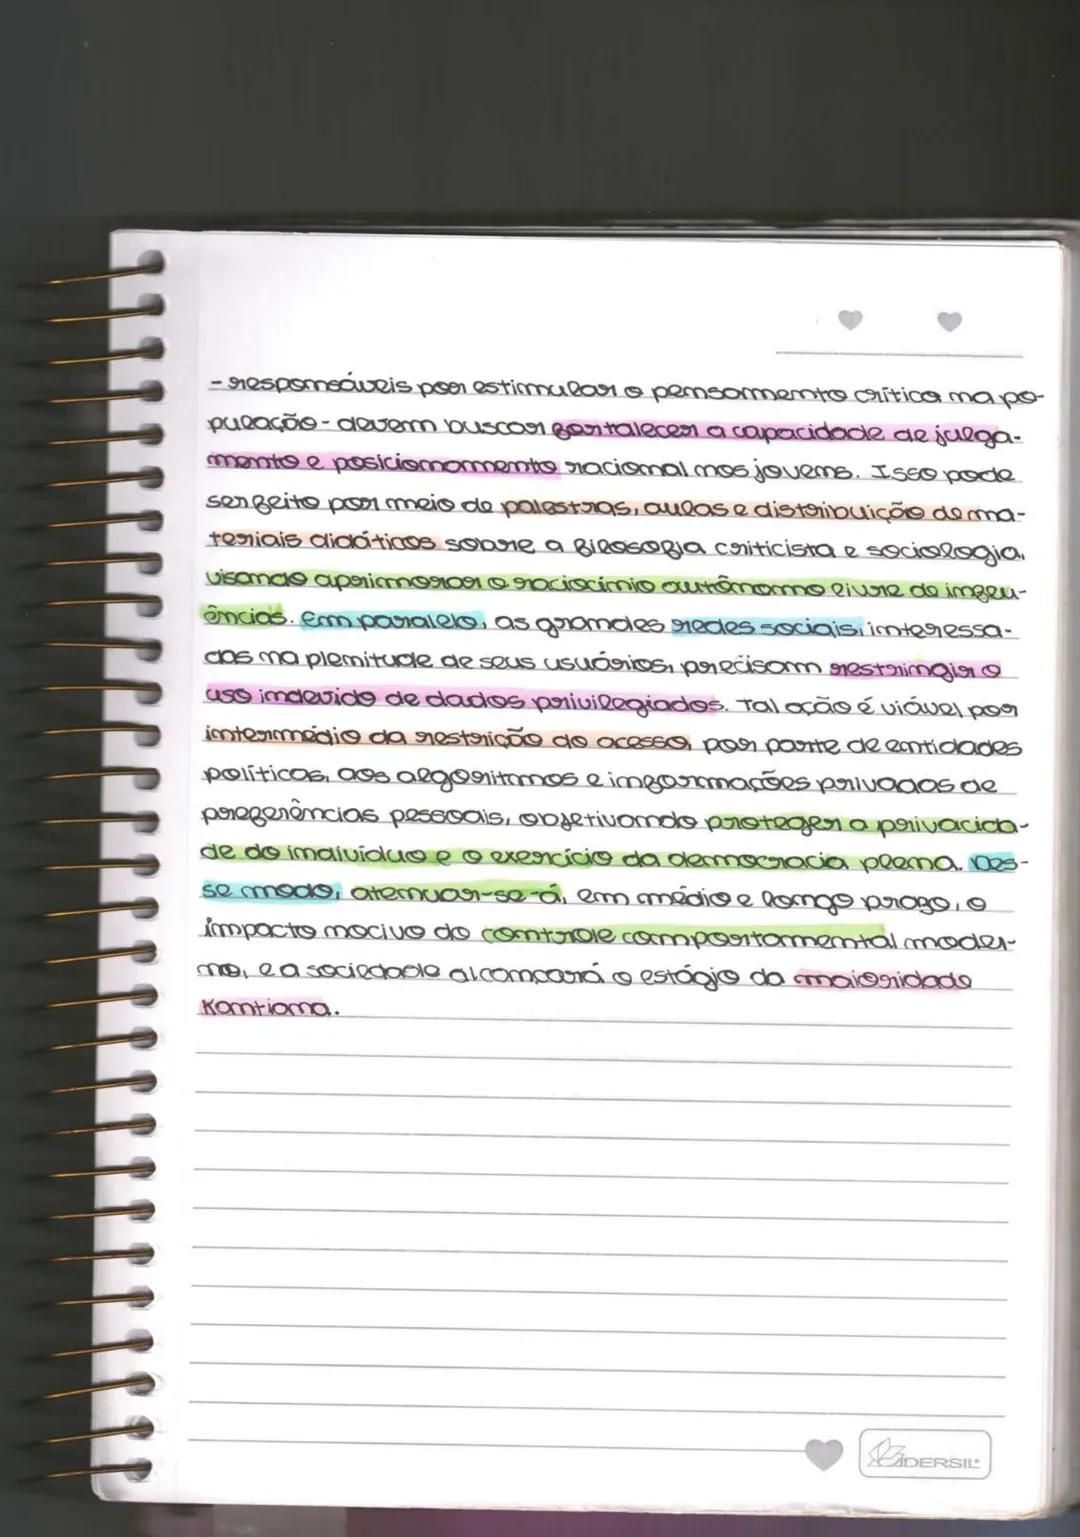 - responsáveis por estimular o pensamento crítico na po-
pulação - devem buscar fortalecer a capacidade de julga-
mento e posicionamento racional nos jovens. Isso pode
ser feito por meio de palestras, aulas e distribuição de ma-
teriais didáticos sobre a filosofia criticista e sociologia,
visando aprimorar o raciocínio autônomo livre de influ-
ências. Em paralelo, as grandes redes sociais, interessa-
das na plenitude de seus usuários, precisam restringir o
uso indevido de dados privilegiados. Tal ação é viável por
intermédio da restrição do acesso, por parte de entidades
políticas, aos algoritmos e informações privadas de
preferências pessoais, objetivando proteger a privacida-
de do indivíduo e o exercício da democracia plena. Des-
se modo, atenuar-se-á, em médio e longo prazo, o
impacto nocivo do controle comportamental moder-
no, e a sociedade alcançará o estágio da maioridade
Kantiana.